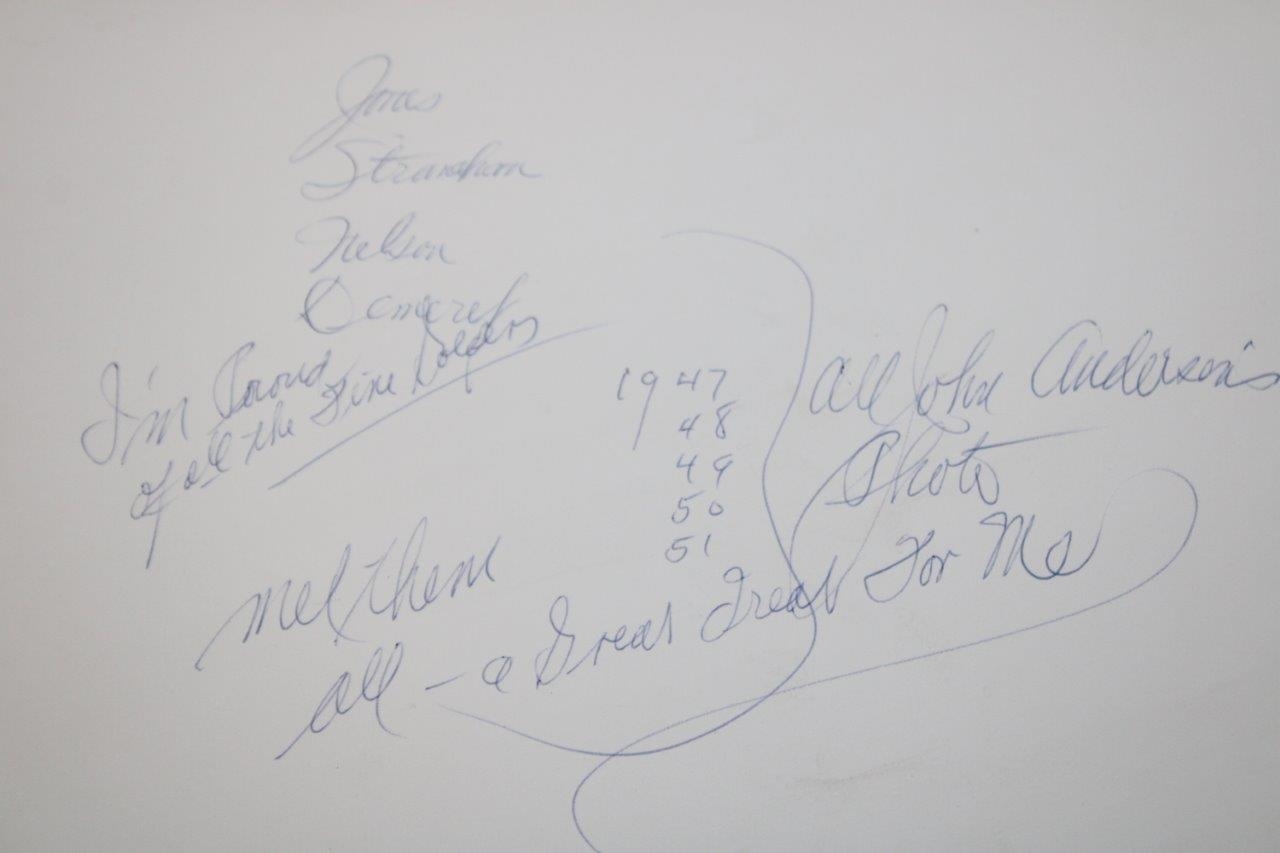 Jones
Stranahan
Nelson
Demaret
I'm Proud
of all the Fine Golfers
1947
48
49
50
51
All John Anderson's
Photo
Met them
all - a Great Treat For Me